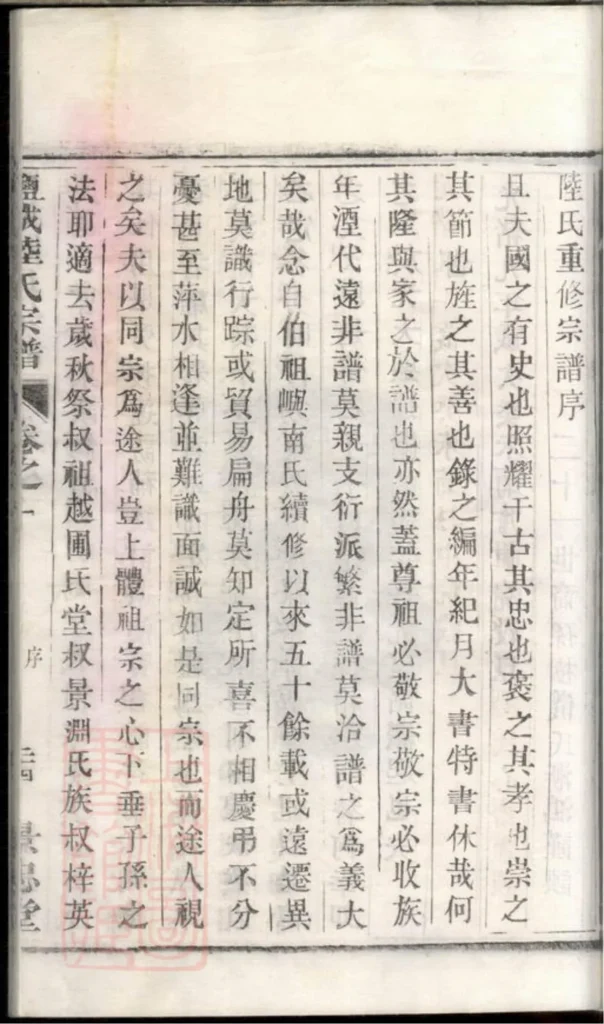 陸氏重修宗譜序
且夫國之有史也照耀千古其忠也褒之其孝也崇之
其節也旌之其善也錄之編年紀月大書特書休哉何
其隆與家之於譜也亦然蓋尊祖必敬宗敬宗必收族
年湮代遠非譜莫親支衍派繁非譜莫洽譜之爲義大
矣哉念自伯祖嶼南氏續修以來五十餘載或遠遷異
地莫識行踪或貿易扁舟莫知定所喜不相慶弔不分
憂甚至萍水相逢並難識面誠如是同宗也而途人視
之矣夫以同宗爲途人豈上體祖宗之心下垂子孫之
法耶適去歲秋祭叔祖越圃氏堂叔景淵氏族叔梓英
鹽城陸氏宗譜 卷之一 序 景忠堂